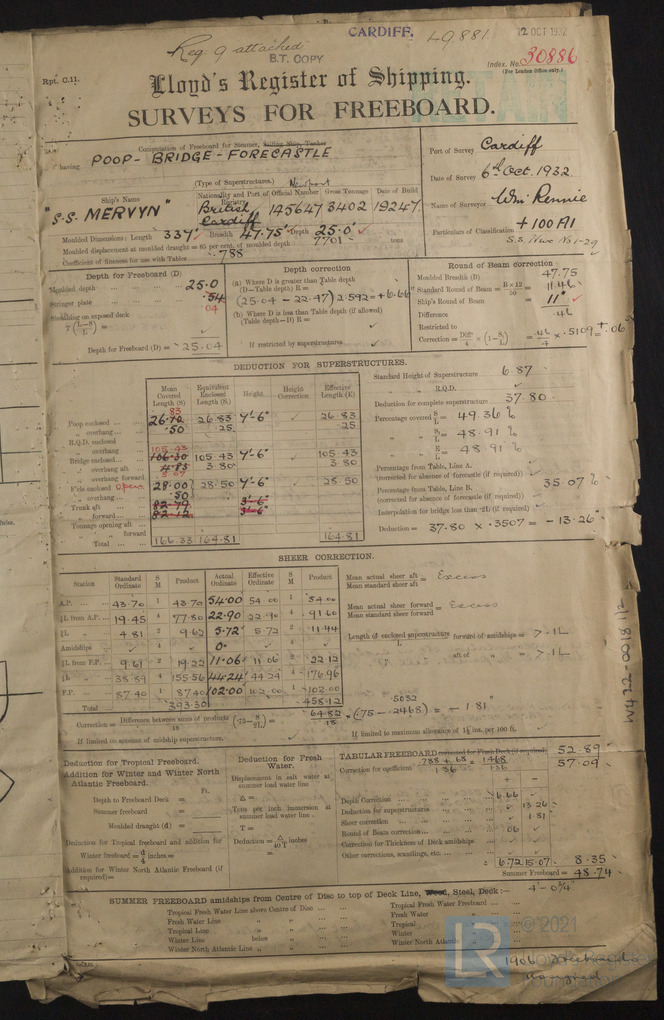 CARDIFF.
49881
12 OCT 1932
Reg. 9 attached
B.T. COPY
Index. No. 30886
(For London Office only.)
Rpt. C.11.
Lloyd's Register of Shipping.
SURVEYS FOR FREEBOARD.
Computation of Freeboard for Steamer, Sailing Ship, Tanker
having POOP - BRIDGE - FORECASTLE
(Type of Superstructures.)
Port of Survey Cardiff
Date of Survey 6th Oct. 1932
Name of Surveyor Wm Rennie
Particulars of Classification +100A1
S.S. No 1-29
Ship's Name
"S.S. MERVYN"
Nationality and Port of Registry
British
Cardiff
Newport
Official Number
145647
Gross Tonnage
3402
Date of Build
1924
Moulded Dimensions: Length 337' Breadth 47.75' Depth 25.0'
Moulded displacement at moulded draught = 85 per cent. of moulded depth 7701 tons
Coefficient of fineness for use with Tables .788
Depth for Freeboard (D)
Moulded depth ... 25.0
Stringer plate ... .54
.04
Sheathing on exposed deck
T (L-S/L) =
Depth for Freeboard (D) = 25.04
Depth correction
(a) Where D is greater than Table depth
(D-Table depth) R =
(25.04 - 22.47) 2.592 = +6.66
(b) Where D is less than Table depth (if allowed)
(Table depth-D) R =
If restricted by superstructures
Round of Beam correction
Moulded Breadth (B) 47.75
Standard Round of Beam = B×12/50 = 11.46
Ship's Round of Beam = 11"
Difference .46
Restricted to
Correction = Diff/4 × (1 - S/L) = .46/4 × .5109 = +.06
DEDUCTION FOR SUPERSTRUCTURES.
Mean Covered Length (S)
Equivalent Enclosed Length (S₁)
Height
Height Correction
Effective Length (E)
Poop enclosed ... 26.70 83 26.83 7'-6" 26.83
„ overhang ... .50 .25 .25
R.Q.D. enclosed
„ overhang
Bridge enclosed... 106.30 105.43 105.43 7'-6" 105.43
„ overhang aft 4.83 3.80 3.80
„ overhang forward
F'cle enclosed open 28.00 28.50 7'-6" 28.50
„ overhang .50
Trunk aft ... 3'-6"
„ forward ... 3'-6"
Tonnage opening aft
„ forward
Total ... 166.33 164.81 164.81
Standard Height of Superstructure 6.87
„ „ R.Q.D.
Deduction for complete superstructure 37.80
Percentage covered S/L = 49.36 %
„ „ S₁/L = 48.91 %
„ „ E/L = 48.91 %
Percentage from Table, Line A.
(corrected for absence of forecastle (if required))
Percentage from Table, Line B. 35.07 %
(corrected for absence of forecastle (if required))
Interpolation for bridge less than .2L (if required)
Deduction = 37.80 × .3507 = - 13.26"
SHEER CORRECTION.
Station
Standard Ordinate
S M
Product
Actual Ordinate
Effective Ordinate
S M
Product
A.P. ... 43.70 1 43.70 54.00 54.00 1 54.00
⅙L from A.P. ... 19.45 4 77.80 22.90 22.90 4 91.60
⅓L „ 4.81 2 9.62 5.72 5.72 2 11.44
Amidships 4 0 4
⅓L from F.P. ... 9.61 2 19.22 11.06 11.06 2 22.12
⅙L „ 38.89 4 155.56 44.24 44.24 4 176.96
F.P. 87.40 1 87.40 102.00 102.00 1 102.00
Total 393.30 458.12
Mean actual sheer aft / Mean standard sheer aft = Excess
Mean actual sheer forward / Mean standard sheer forward = Excess
Length of enclosed superstructure forward of amidships = > .1L
„ aft of „ = > .1L
Correction = Difference between sums of products / 18 (.75 - S/2L) = 64.82/18 × (.75 - .2468) = - 1.81"
.5032
If limited on account of midship superstructure.
If limited to maximum allowance of 1½ ins. per 100 ft.
Deduction for Tropical Freeboard.
Addition for Winter and Winter North Atlantic Freeboard.
Ft.
Depth to Freeboard Deck =
Summer freeboard =
Moulded draught (d) =
Deduction for Tropical freeboard and addition for
Winter freeboard = d/4 inches =
Addition for Winter North Atlantic Freeboard (if required) =
Deduction for Fresh Water.
Displacement in salt water at summer load water line
Δ =
Tons per inch immersion at summer load water line
T =
Deduction = Δ/40T inches
=
TABULAR FREEBOARD corrected for Flush Deck (if required) 52.89
Correction for coefficient .788 + .68 / 1.36 = 1.468 / 1.36 57.09
+ -
Depth Correction ... 6.66
Deduction for superstructures ... 13.26
Sheer correction ... 1.81
Round of Beam correction ... .06
Correction for Thickness of Deck amidships
Other corrections, scantlings, etc. ...
= 6.72 15.07 8.35
Summer Freeboard = 48.74
4'-0¾"
SUMMER FREEBOARD amidships from Centre of Disc to top of Deck Line, Wood, Steel, Deck :-
Tropical Fresh Water Line above Centre of Disc ...
Fresh Water Line „ „
Tropical Line „ „
Winter Line below „
Winter North Atlantic Line „ „
Tropical Fresh Water Freeboard ...
Fresh Water „
Tropical „
Winter „
Winter North Atlantic „
W422-0018 1/2
LR
© 2021
1906 Freeboard
assigned